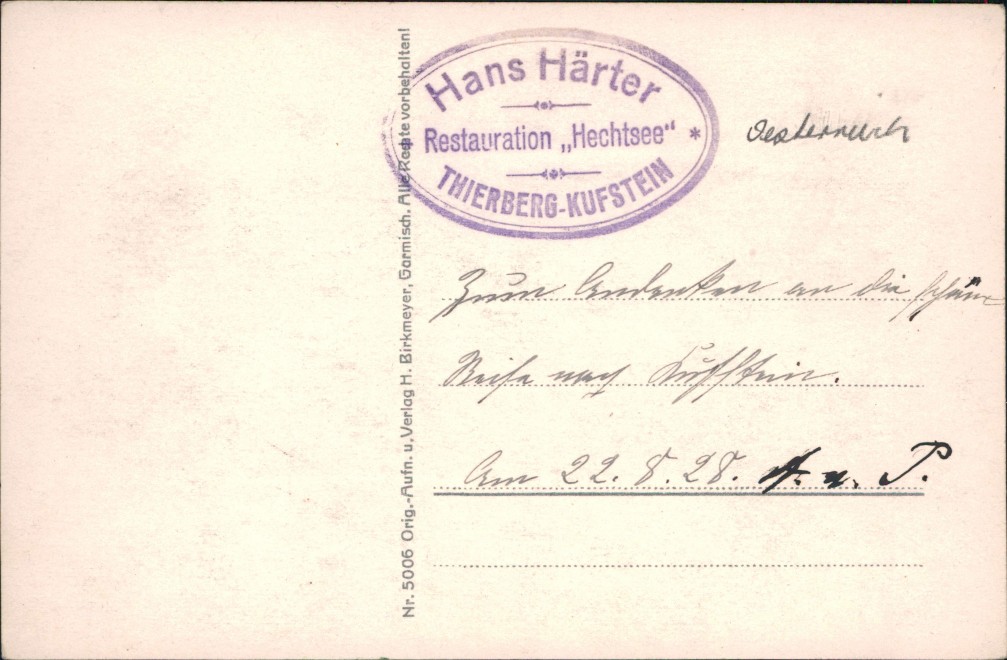 Nr. 5006 Orig.-Aufn. u. Verlag H. Birkmeyer, Garmisch. Alle Rechte vorbehalten!
Hans Härter
Restauration „Hechtsee“ *
THIERBERG-KUFSTEIN
Oesterreich
Zum Andenken an die schöne
Reise nach Kufstein.
Am 22. 8. 28. A. u. P.